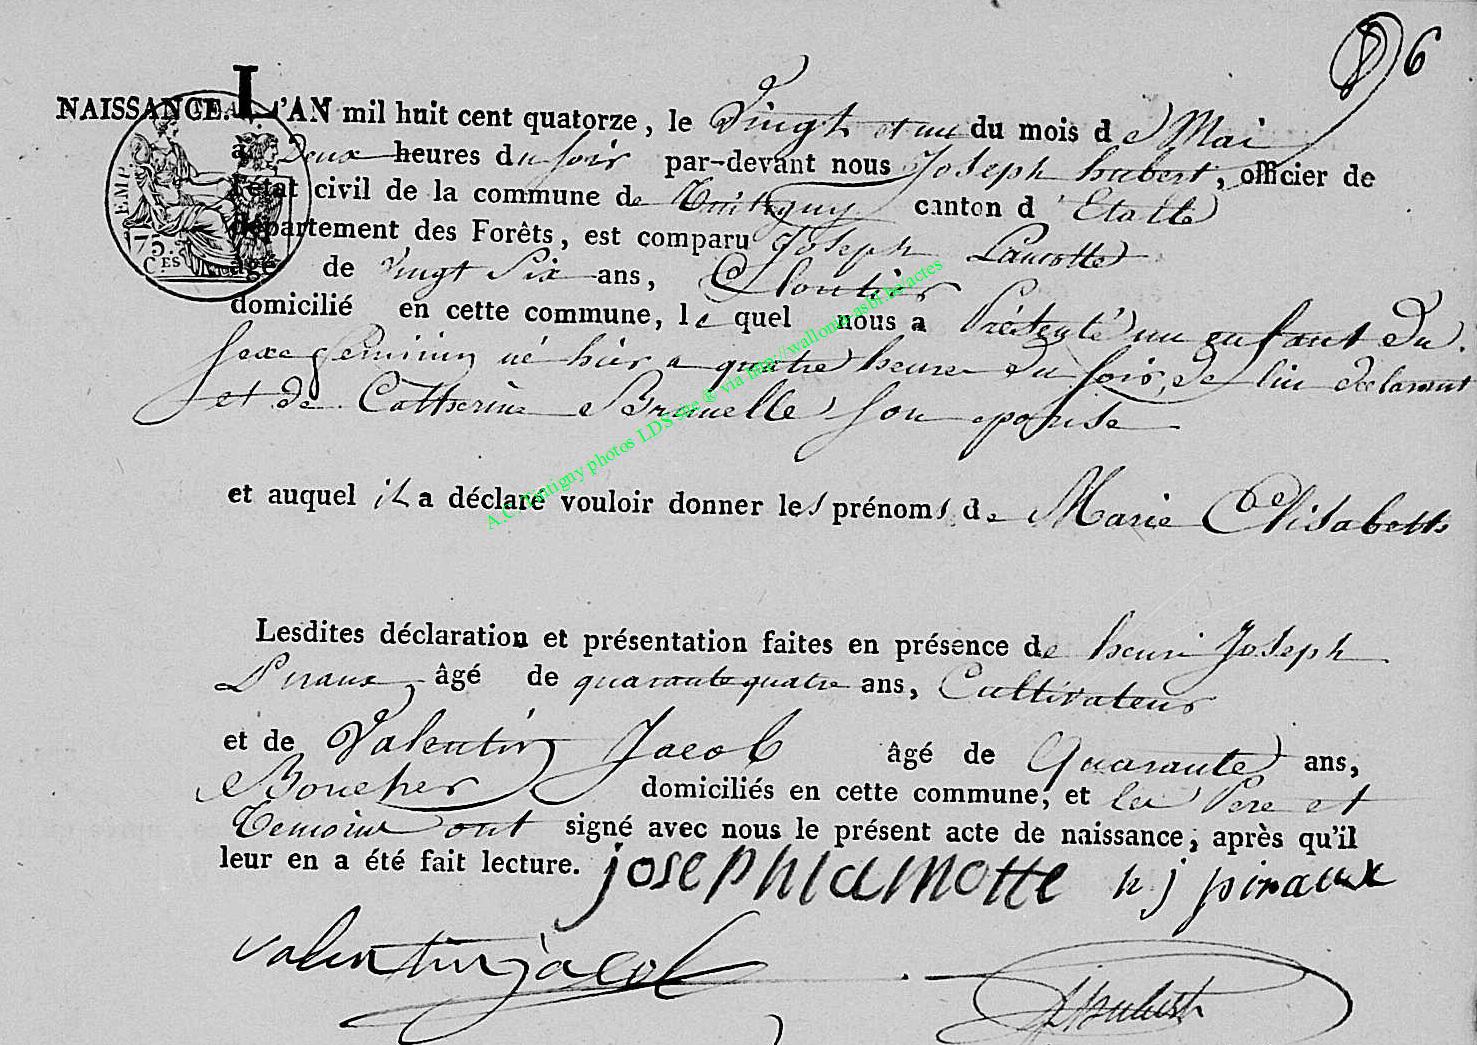 6
NAISSANCE. L'AN mil huit cent quatorze, le Vingt et un du mois de Mai
à Deux heures du soir par-devant nous Joseph hubert, officier de
l'état civil de la commune de Tintigny canton d'Etalle
département des Forêts, est comparu Joseph Lamotte
âgé de vingt Six ans, Cloutier
domicilié en cette commune, lequel nous a Présenté un enfant du
sexe feminin né hier a quatre heure du soir, de lui declarant
et de Catherine Brunelle son epouse
et auquel il a déclaré vouloir donner les prénoms de Marie Elisabeth
Lesdites déclaration et présentation faites en présence de henri Joseph
Piraux, âgé de quarante quatre ans, Cultivateur
et de Valentin Jacob âgé de Quarante ans,
Boucher domiciliés en cette commune, et les Pere et
Temoins ont signé avec nous le présent acte de naissance, après qu'il
leur en a été fait lecture. joseph lamotte h j piraux
valentin jacob
JHubert
EMP.
75 CES
A.C. Tintigny photos LDS site & via http://wallonia-asbl.be/actes